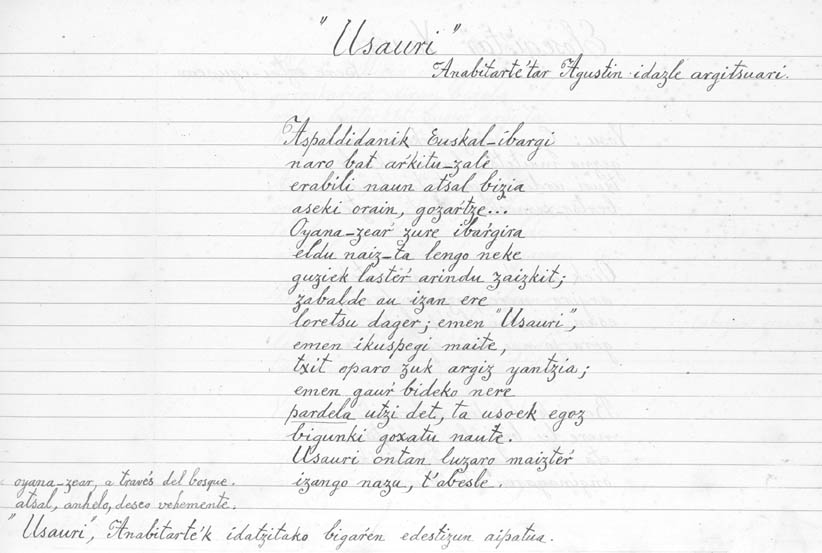 "Usauri"
Anabitarte'tar Agustin idazle argitsuari.
Aspaldidanik Euskal-ibargi
naro bat aŕkitu-zale
erabili naun atsal bizia
aseki orain, gozaŕtze...
Oyana-zeaŕ zure ibaŕgira
eldu naiz-ta lengo neke
guziek lasteŕ arindu zaizkit;
zabalde au izan ere
loretsu dager; emen "Usauri",
emen ikuspegi maite,
txit oparo zuk argiz yantzia;
emen gauŕ bideko nere
pardela utzi det, ta usoek egoz
bigunki goxatu naute.
Usauri ontan luzaro maizteŕ
izango nazu, t'abesle.
oyana-zear, a través del bosque.
atsal, anhelo, deseo vehemente.
"Usauri", Anabitarte'k idatzitako bigaŕen edestizun aipatua.